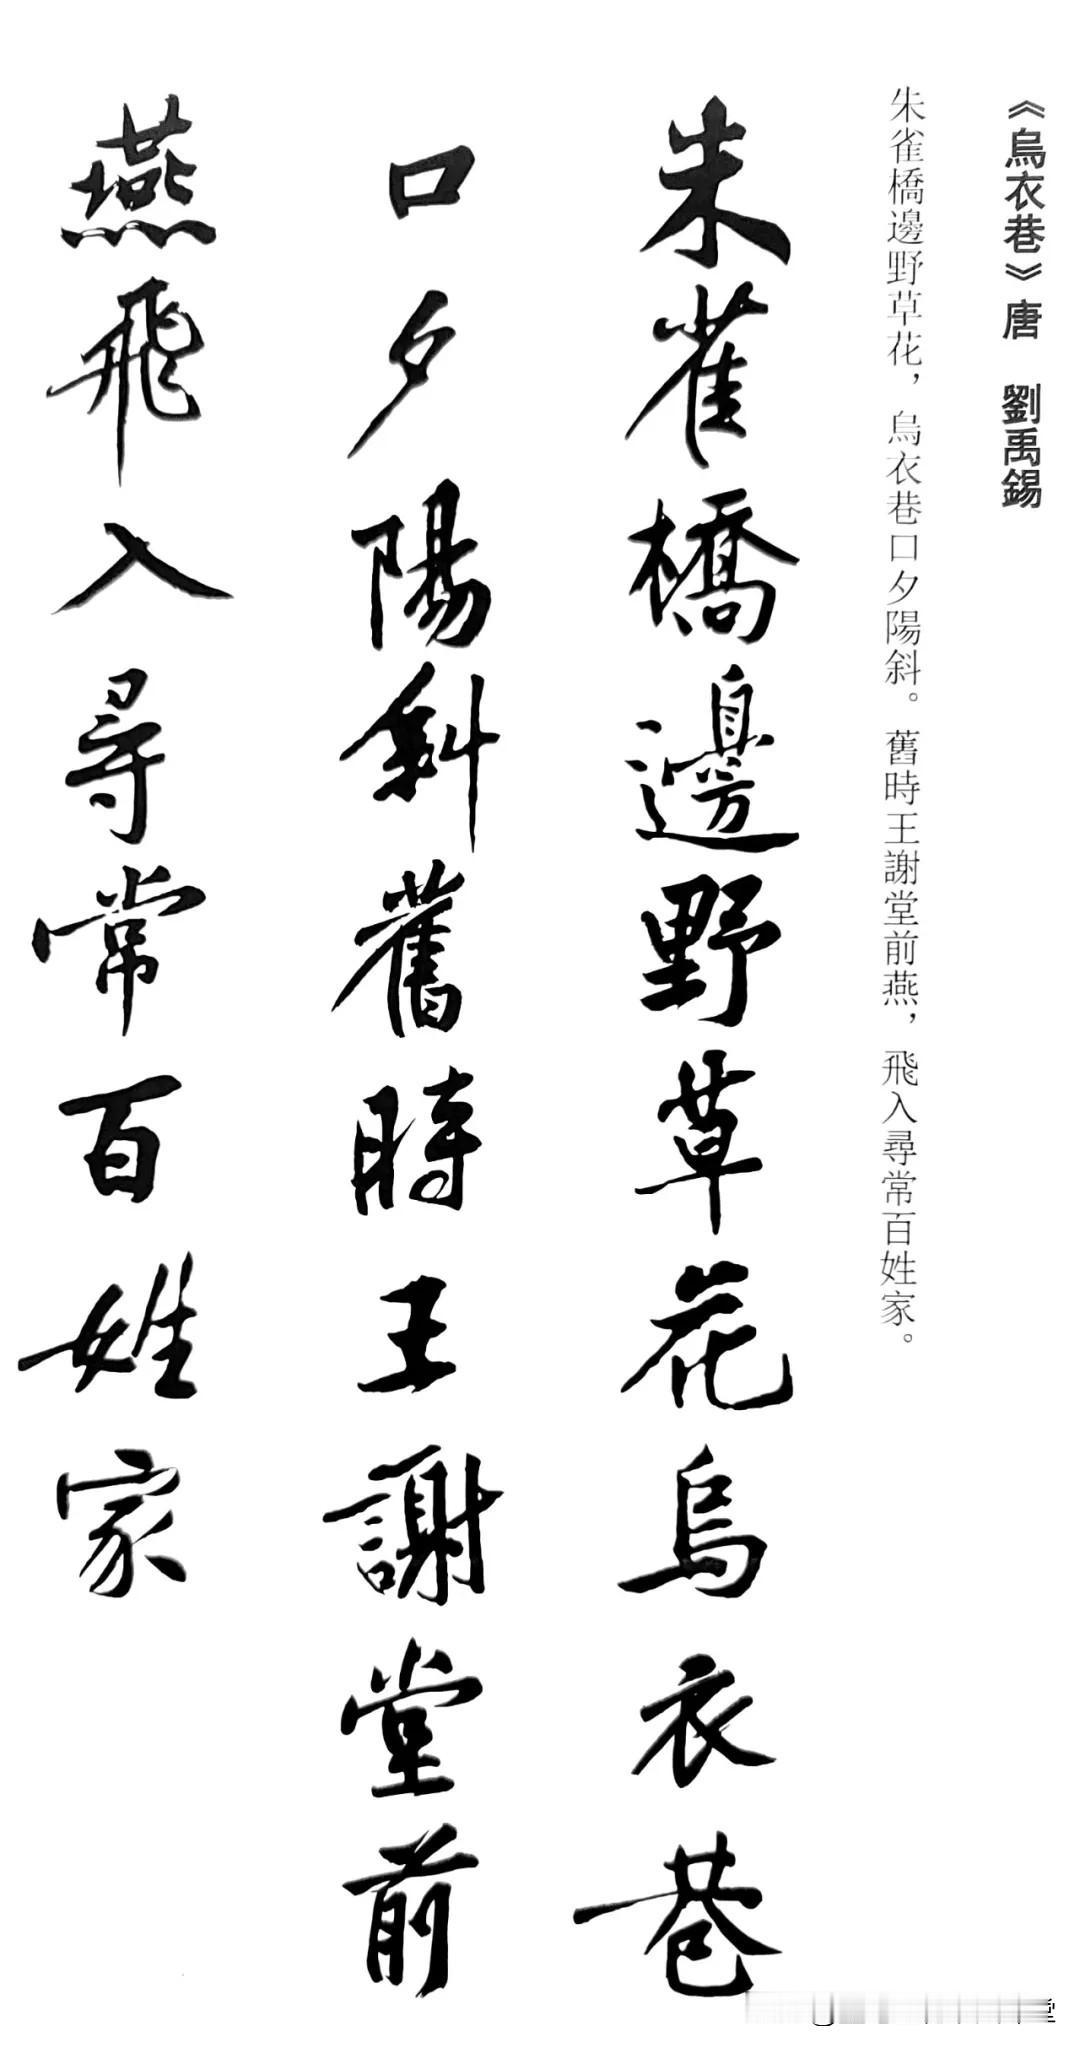 《烏衣巷》唐　劉禹錫
朱雀橋邊野草花，烏衣巷口夕陽斜。舊時王謝堂前燕，飛入尋常百姓家。
朱雀橋邊野草花烏衣巷
口夕陽斜舊時王謝堂前
燕飛入尋常百姓家